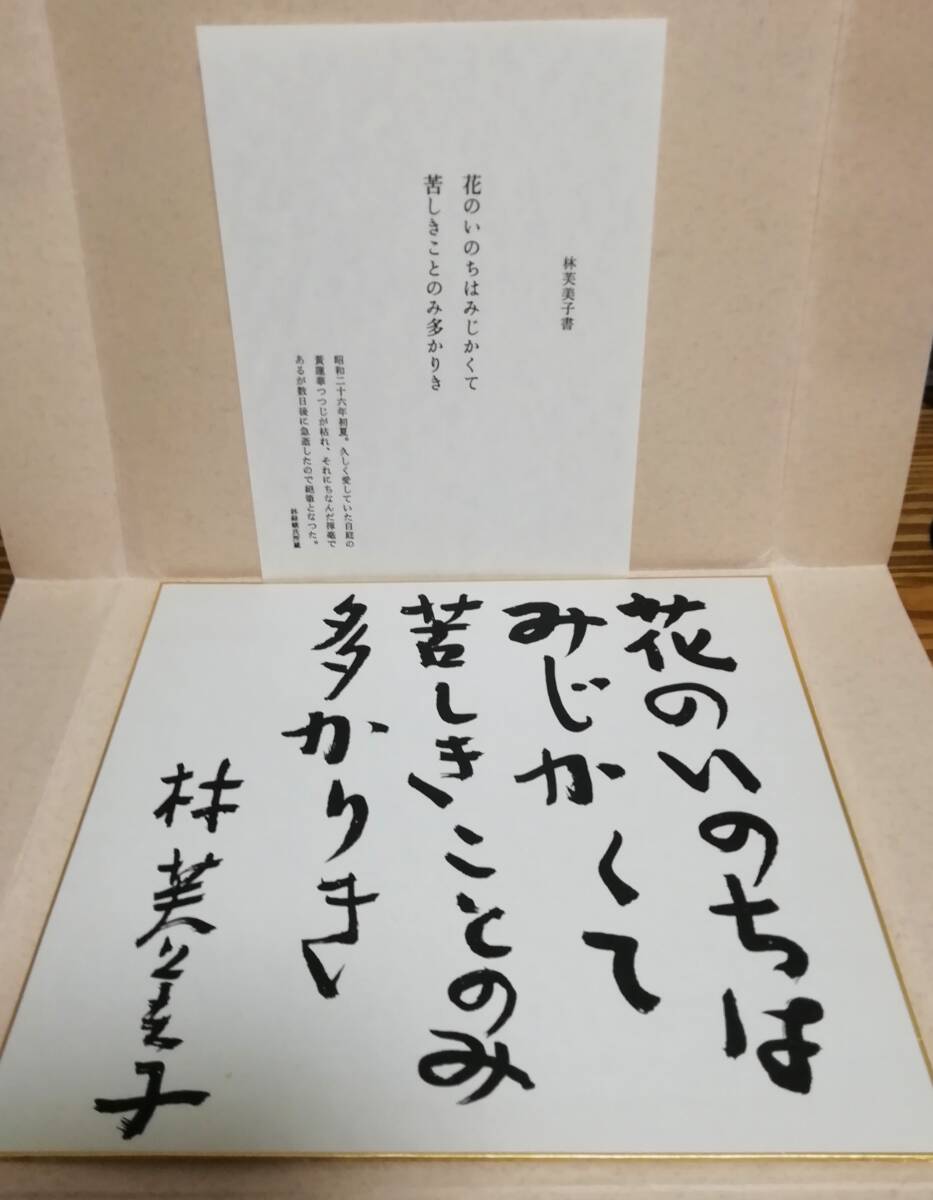 林芙美子書
花のいのちはみじかくて
苦しきことのみ多かりき
昭和二十六年初夏。久しく愛していた自庭の
黄蓮華つつじが枯れ、それにちなんだ揮毫で
あるが数日後に急逝したので絶筆となつた。
花のいのちは
みじかくて
苦しきことのみ
多かりき
林芙美子